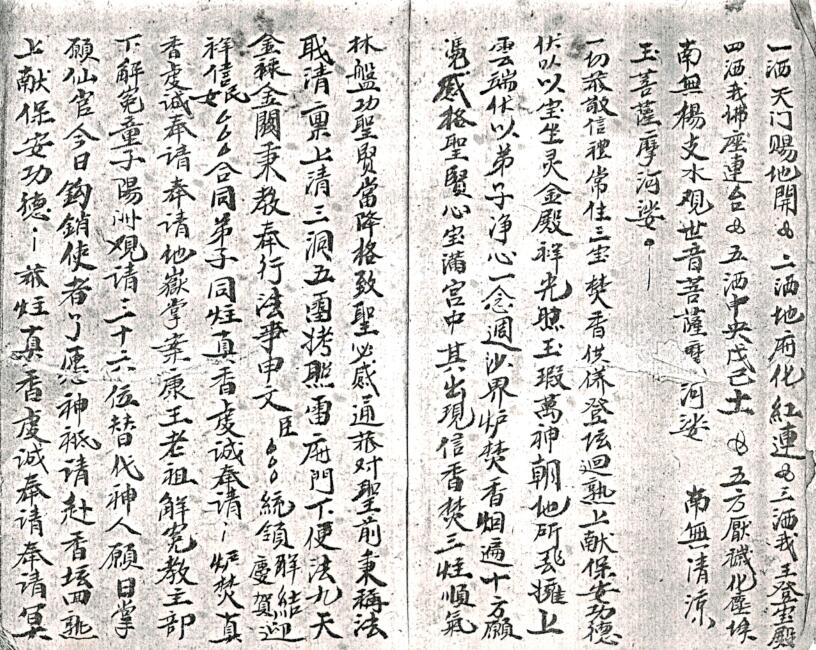 一洒天门赐地開 二洒地府化紅連 三洒我王登宝殿
四洒我拂座連台 五洒中央戊己土 五方厭穢化塵埃
南無楊支水观世音菩薩摩河娑 南無清凉
玉菩薩摩河娑
一切敬信禮常住三宝焚香供侢登坛迴熟上献保安功德
伏以以宝坐灵金殿祥光照玉瑕萬神朝他所飛擁上
雲端伏以弟子净心一念週沙界炉焚香烟遍十方願
憑感格聖賢心宝滿宫中其出現信香焚三炷順氣
林盤功聖賢當降格致聖必感通兹对聖前秉稱法
职清禀上清三洞五雷拷照雷府門下便法九天
金籙金闕秉教奉行法事申文臣 統领解結慶賀迎
祥信民女 合同弟子同炷真香虔诚奉请 炉焚真
香虔诚奉请奉请地嶽掌案康王老祖解冤教主部
下解冤童子陽州观请三十六位替代神人願日掌
愿仙官今日鈎銷使者了愿神祗请赴香坛四
上献保安功德 兹炷真香虔诚奉请奉请冥